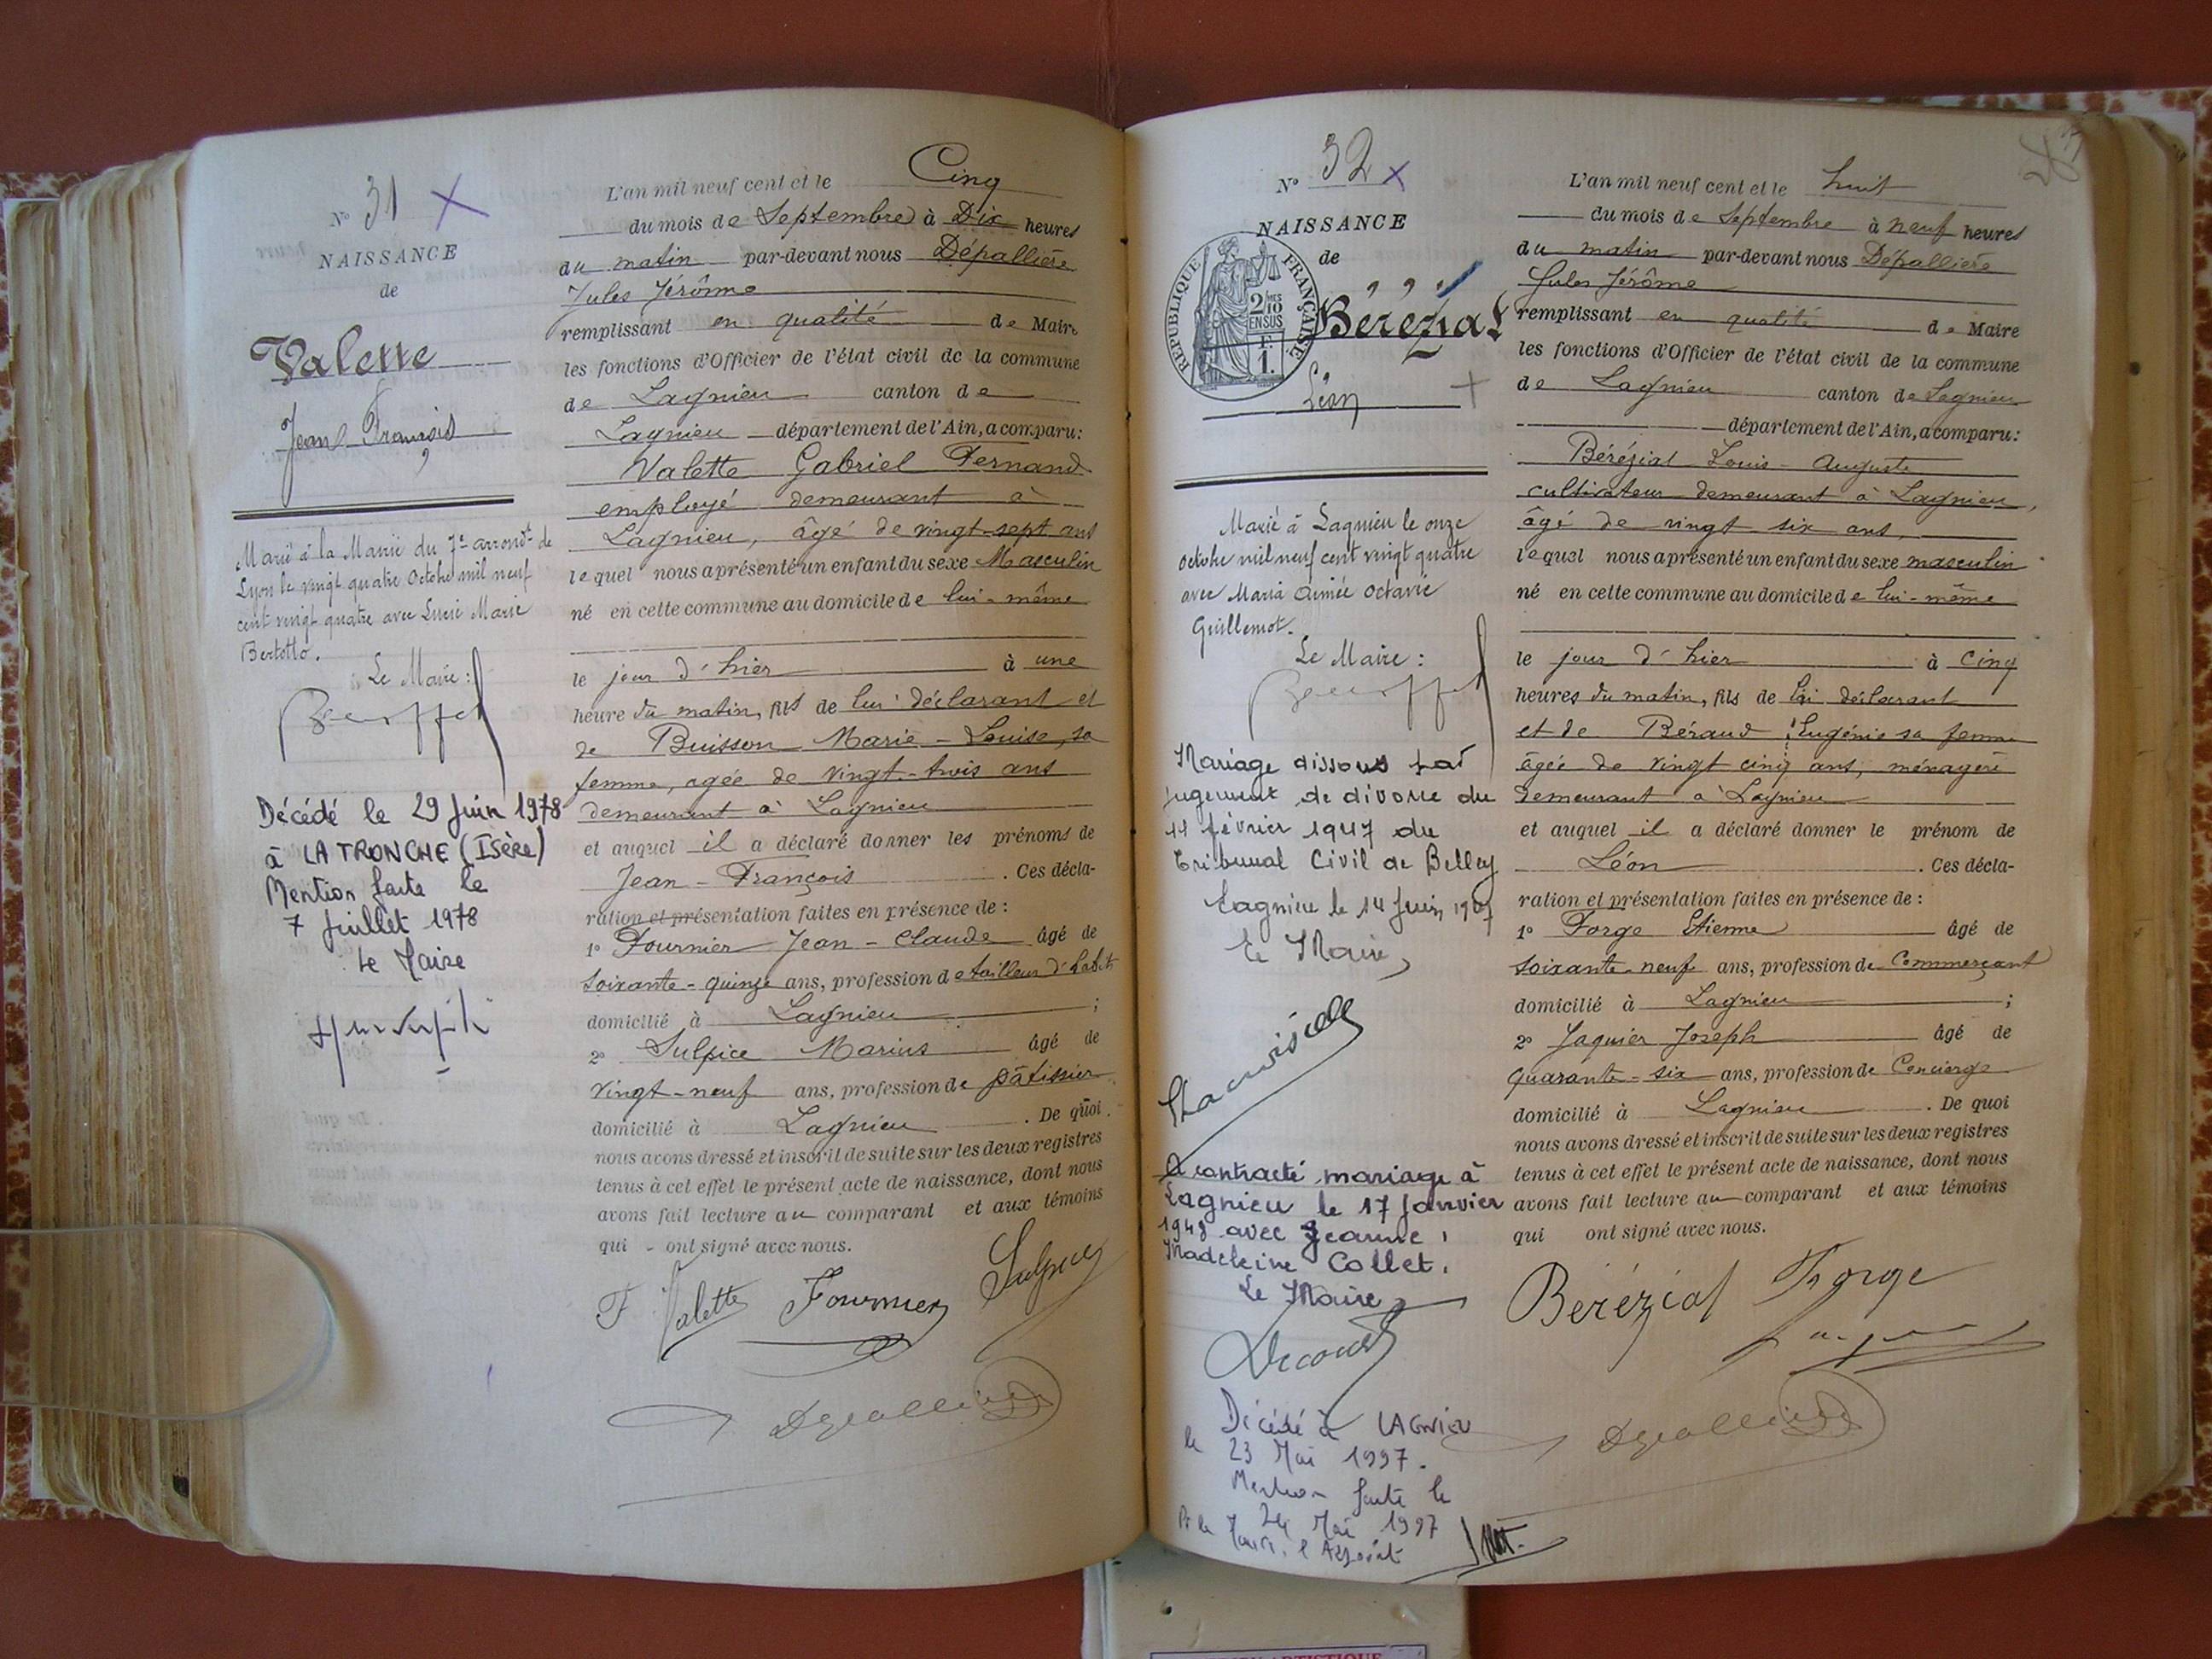 N° 31 X
NAISSANCE
de
Valette
Jean François
Marié à la Mairie du 7e arrondt de
Lyon le vingt quatre Octobre mil neuf
cent vingt quatre avec Lucie Marie
Bertotto.
Le Maire :
Décédé le 29 Juin 1978
à LA TRONCHE (Isère)
Mention faite le
7 Juillet 1978
Le Maire
L'an mil neuf cent et le Cinq
du mois de Septembre à Dix heures
du matin par-devant nous Dépallière
Jules Jérôme
remplissant en qualité de Maire
les fonctions d'Officier de l'état civil de la commune
de Lagnieu canton de
Lagnieu département de l'Ain, a comparu:
Valette Gabriel Fernand
employé demeurant à
Lagnieu, âgé de vingt-sept ans
lequel nous a présenté un enfant du sexe Masculin
né en cette commune au domicile de lui-même
le jour d'hier à une
heure du matin, fils de lui déclarant et
de Buisson Marie-Louise, sa
femme, agée de vingt-trois ans
demeurant à Lagnieu
et auquel il a déclaré donner les prénoms de
Jean-François . Ces décla-
ration et présentation faites en présence de :
1° Fournier Jean-Claude âgé de
soixante-quinze ans, profession de tailleur d'habits
domicilié à Lagnieu ;
2° Sulpice Marius âgé de
vingt-neuf ans, profession de pâtissier
domicilié à Lagnieu . De quoi
nous avons dressé et inscrit de suite sur les deux registres
tenus à cet effet le présent acte de naissance, dont nous
avons fait lecture au comparant et aux témoins
qui - ont signé avec nous.
F Valette Fournier Sulpice
Dépallière
N° 32 X
NAISSANCE
de
RÉPUBLIQUE FRANÇAISE
2/10MES
EN SUS
F.
1.
Bérézial
Léon
Marié à Lagnieu le onze
octobre mil neuf cent vingt quatre
avec Maria Aimée Octavie
Guillemot.
Le Maire :
Mariage dissous par
jugement de divorce du
14 février 1947 du
Tribunal Civil de Belley
Lagnieu le 14 Juin 1947
Le Maire,
A contracté mariage à
Lagnieu le 17 Janvier
1948 avec Jeanne
Madeleine Collet.
Le Maire
Décédé à LAGNIEU
le 23 Mai 1997.
Mention faite le
24 Mai 1997
Pr le Maire, l'Adjoint
L'an mil neuf cent et le huit
du mois de Septembre à neuf heures
du matin par-devant nous Dépallière
Jules Jérôme
remplissant en qualité de Maire
les fonctions d'Officier de l'état civil de la commune
de Lagnieu canton de Lagnieu
département de l'Ain, a comparu:
Bérézial Louis-Auguste
cultivateur demeurant à Lagnieu,
âgé de vingt six ans,
lequel nous a présenté un enfant du sexe masculin
né en cette commune au domicile de lui-même
le jour d'hier à cinq
heures du matin, fils de lui déclarant
et de Béraud Eugénie sa femme
âgée de vingt cinq ans, ménagère
demeurant à Lagnieu
et auquel il a déclaré donner le prénom de
Léon . Ces décla-
ration et présentation faites en présence de :
1° Forge Etienne âgé de
soixante-neuf ans, profession de Commerçant
domicilié à Lagnieu ;
2° Jaquier Joseph âgé de
quarante-six ans, profession de Concierge
domicilié à Lagnieu . De quoi
nous avons dressé et inscrit de suite sur les deux registres
tenus à cet effet le présent acte de naissance, dont nous
avons fait lecture au comparant et aux témoins
qui ont signé avec nous.
Bérézial Forge
Jaquier
Dépallière